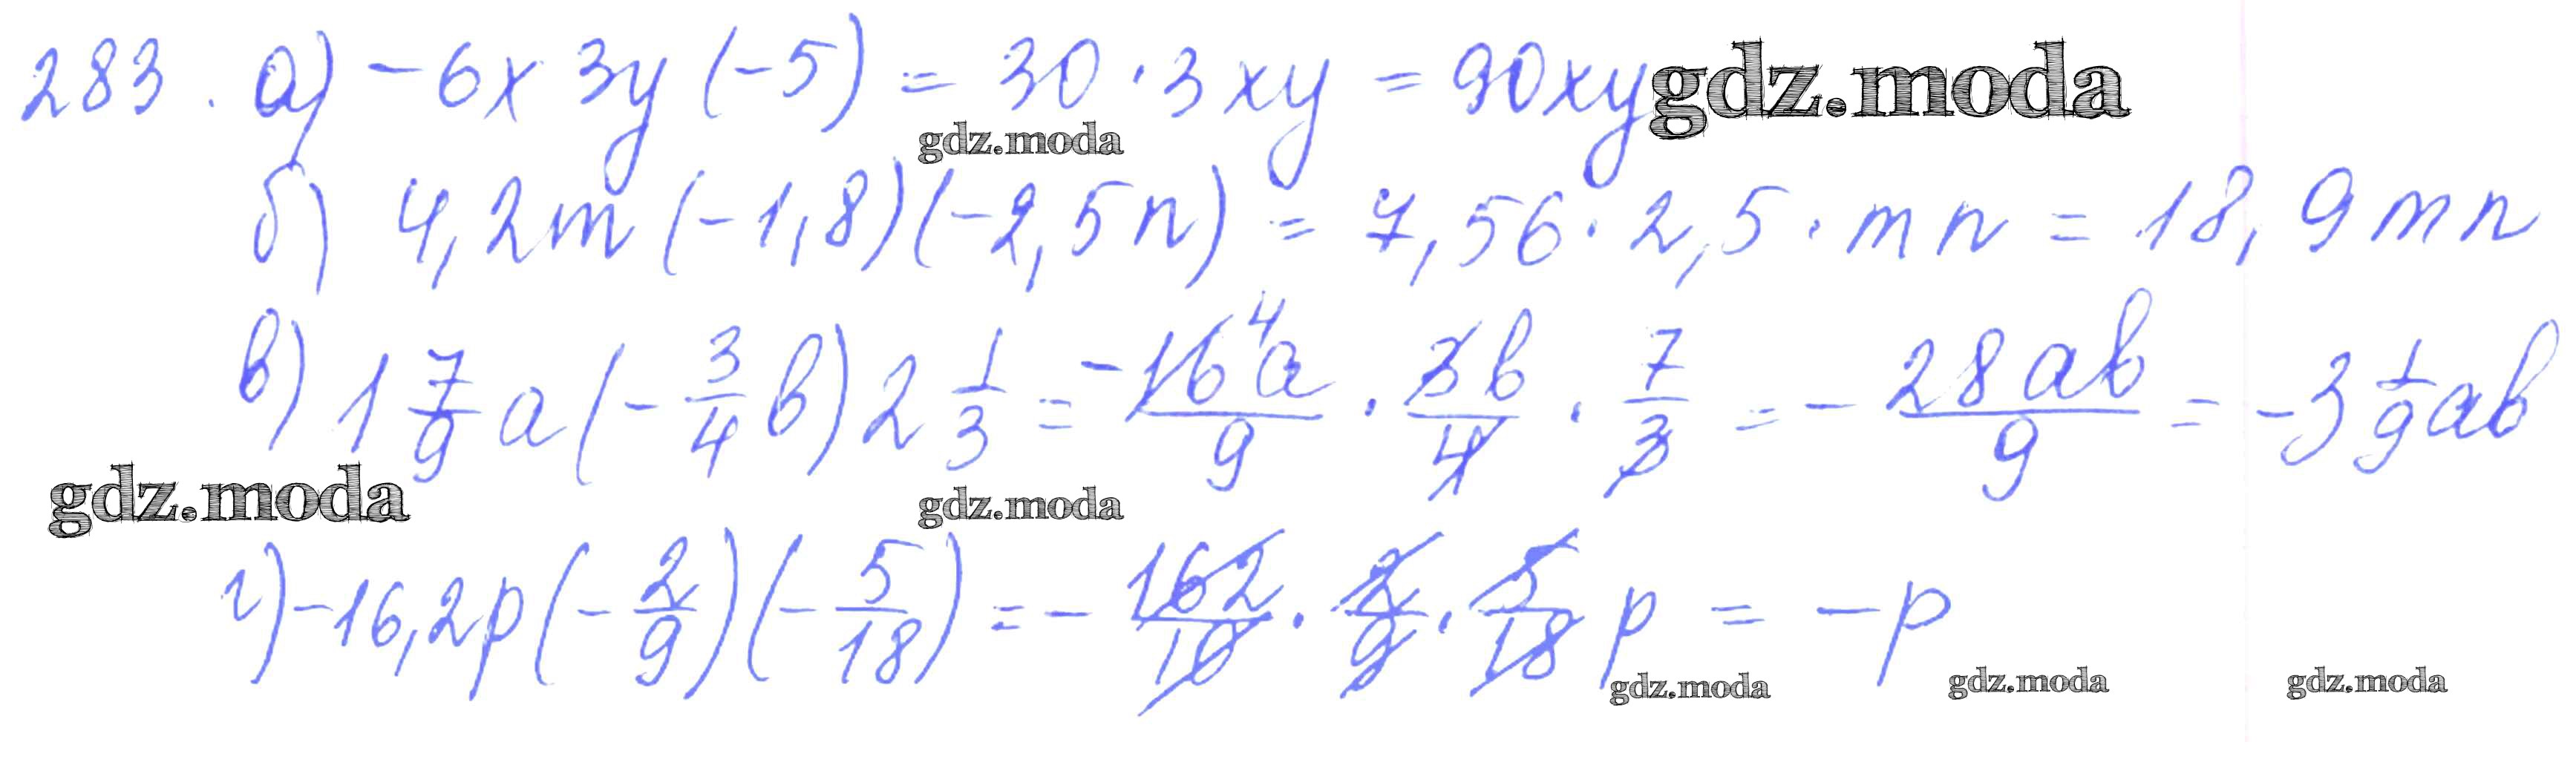 283. а) -6x 3y (-5) = 30 · 3xy = 90xy gdz.moda
gdz.moda
б) 4,2m (-1,8)(-2,5n) = 7,56 · 2,5 · mn = 18,9mn
в) 1 7/9 a (-3/4 b) 2 1/3 = -16⁴a/9 · 3b/4 · 7/3 = - 28ab/9 = -3 1/9 ab
gdz.moda gdz.moda
г) -16,2p (-2/9)(-5/18) = - 162/10 · 2/9 · 5/18 p = -p
gdz.moda gdz.moda gdz.moda